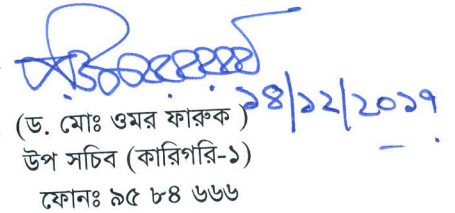 ২৪/১২/২০১৭
(ড. মোঃ ওমর ফারুক )
উপ সচিব (কারিগরি-১)
ফোনঃ ৯৫ ৮৪ ৬৬৬